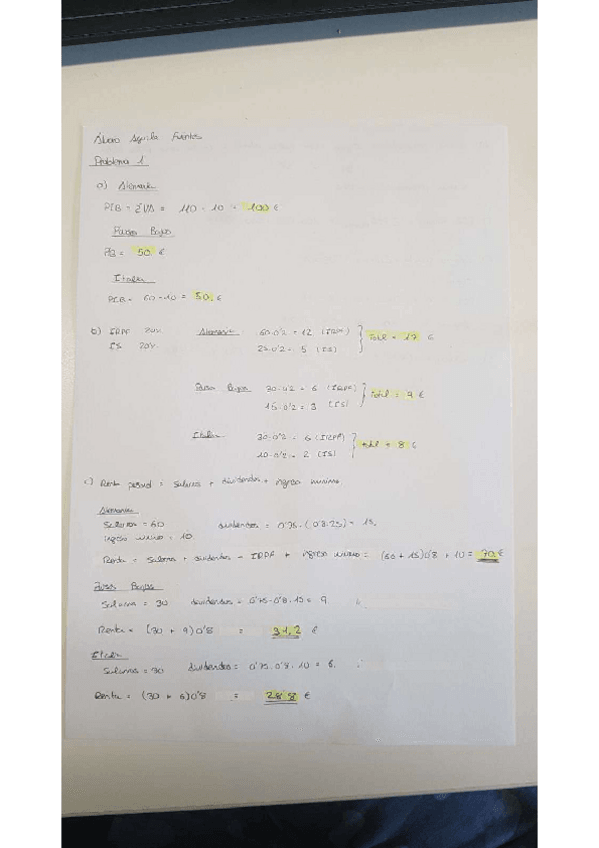 Álvaro Aguila Fuentes
Problema 1
a) Alemania
PIB = ΣVA = 110 - 10 = 100 €
Países Bajos
PIB = 50 €
Italia
PIB = 60 - 10 = 50 €
b) IRPF 20% Alemania 60·0'2 = 12 (IRPF)
IS 20% 25·0'2 = 5 (IS) } Total = 17 €
Países Bajos 30·0'2 = 6 (IRPF)
15·0'2 = 3 (IS) } Total = 9 €
Italia 30·0'2 = 6 (IRPF)
10·0'2 = 2 (IS) } total = 8 €
c) Renta personal = salarios + dividendos + ingreso mínimo
Alemania
Salarios = 60 dividendos = 0'75·(0'8·25) = 15
ingreso mínimo = 10
Renta = salarios + dividendos - IRPF + ingreso mínimo = (60 + 15)0'8 + 10 = 70 €
Países Bajos
Salarios = 30 dividendos = 0'75·0'8·15 = 9
Renta = (30 + 9)0'8 = 31,2 €
Italia
Salarios = 30 dividendos = 0'75·0'8·10 = 6
Renta = (30 + 6)0'8 = 28'8 €